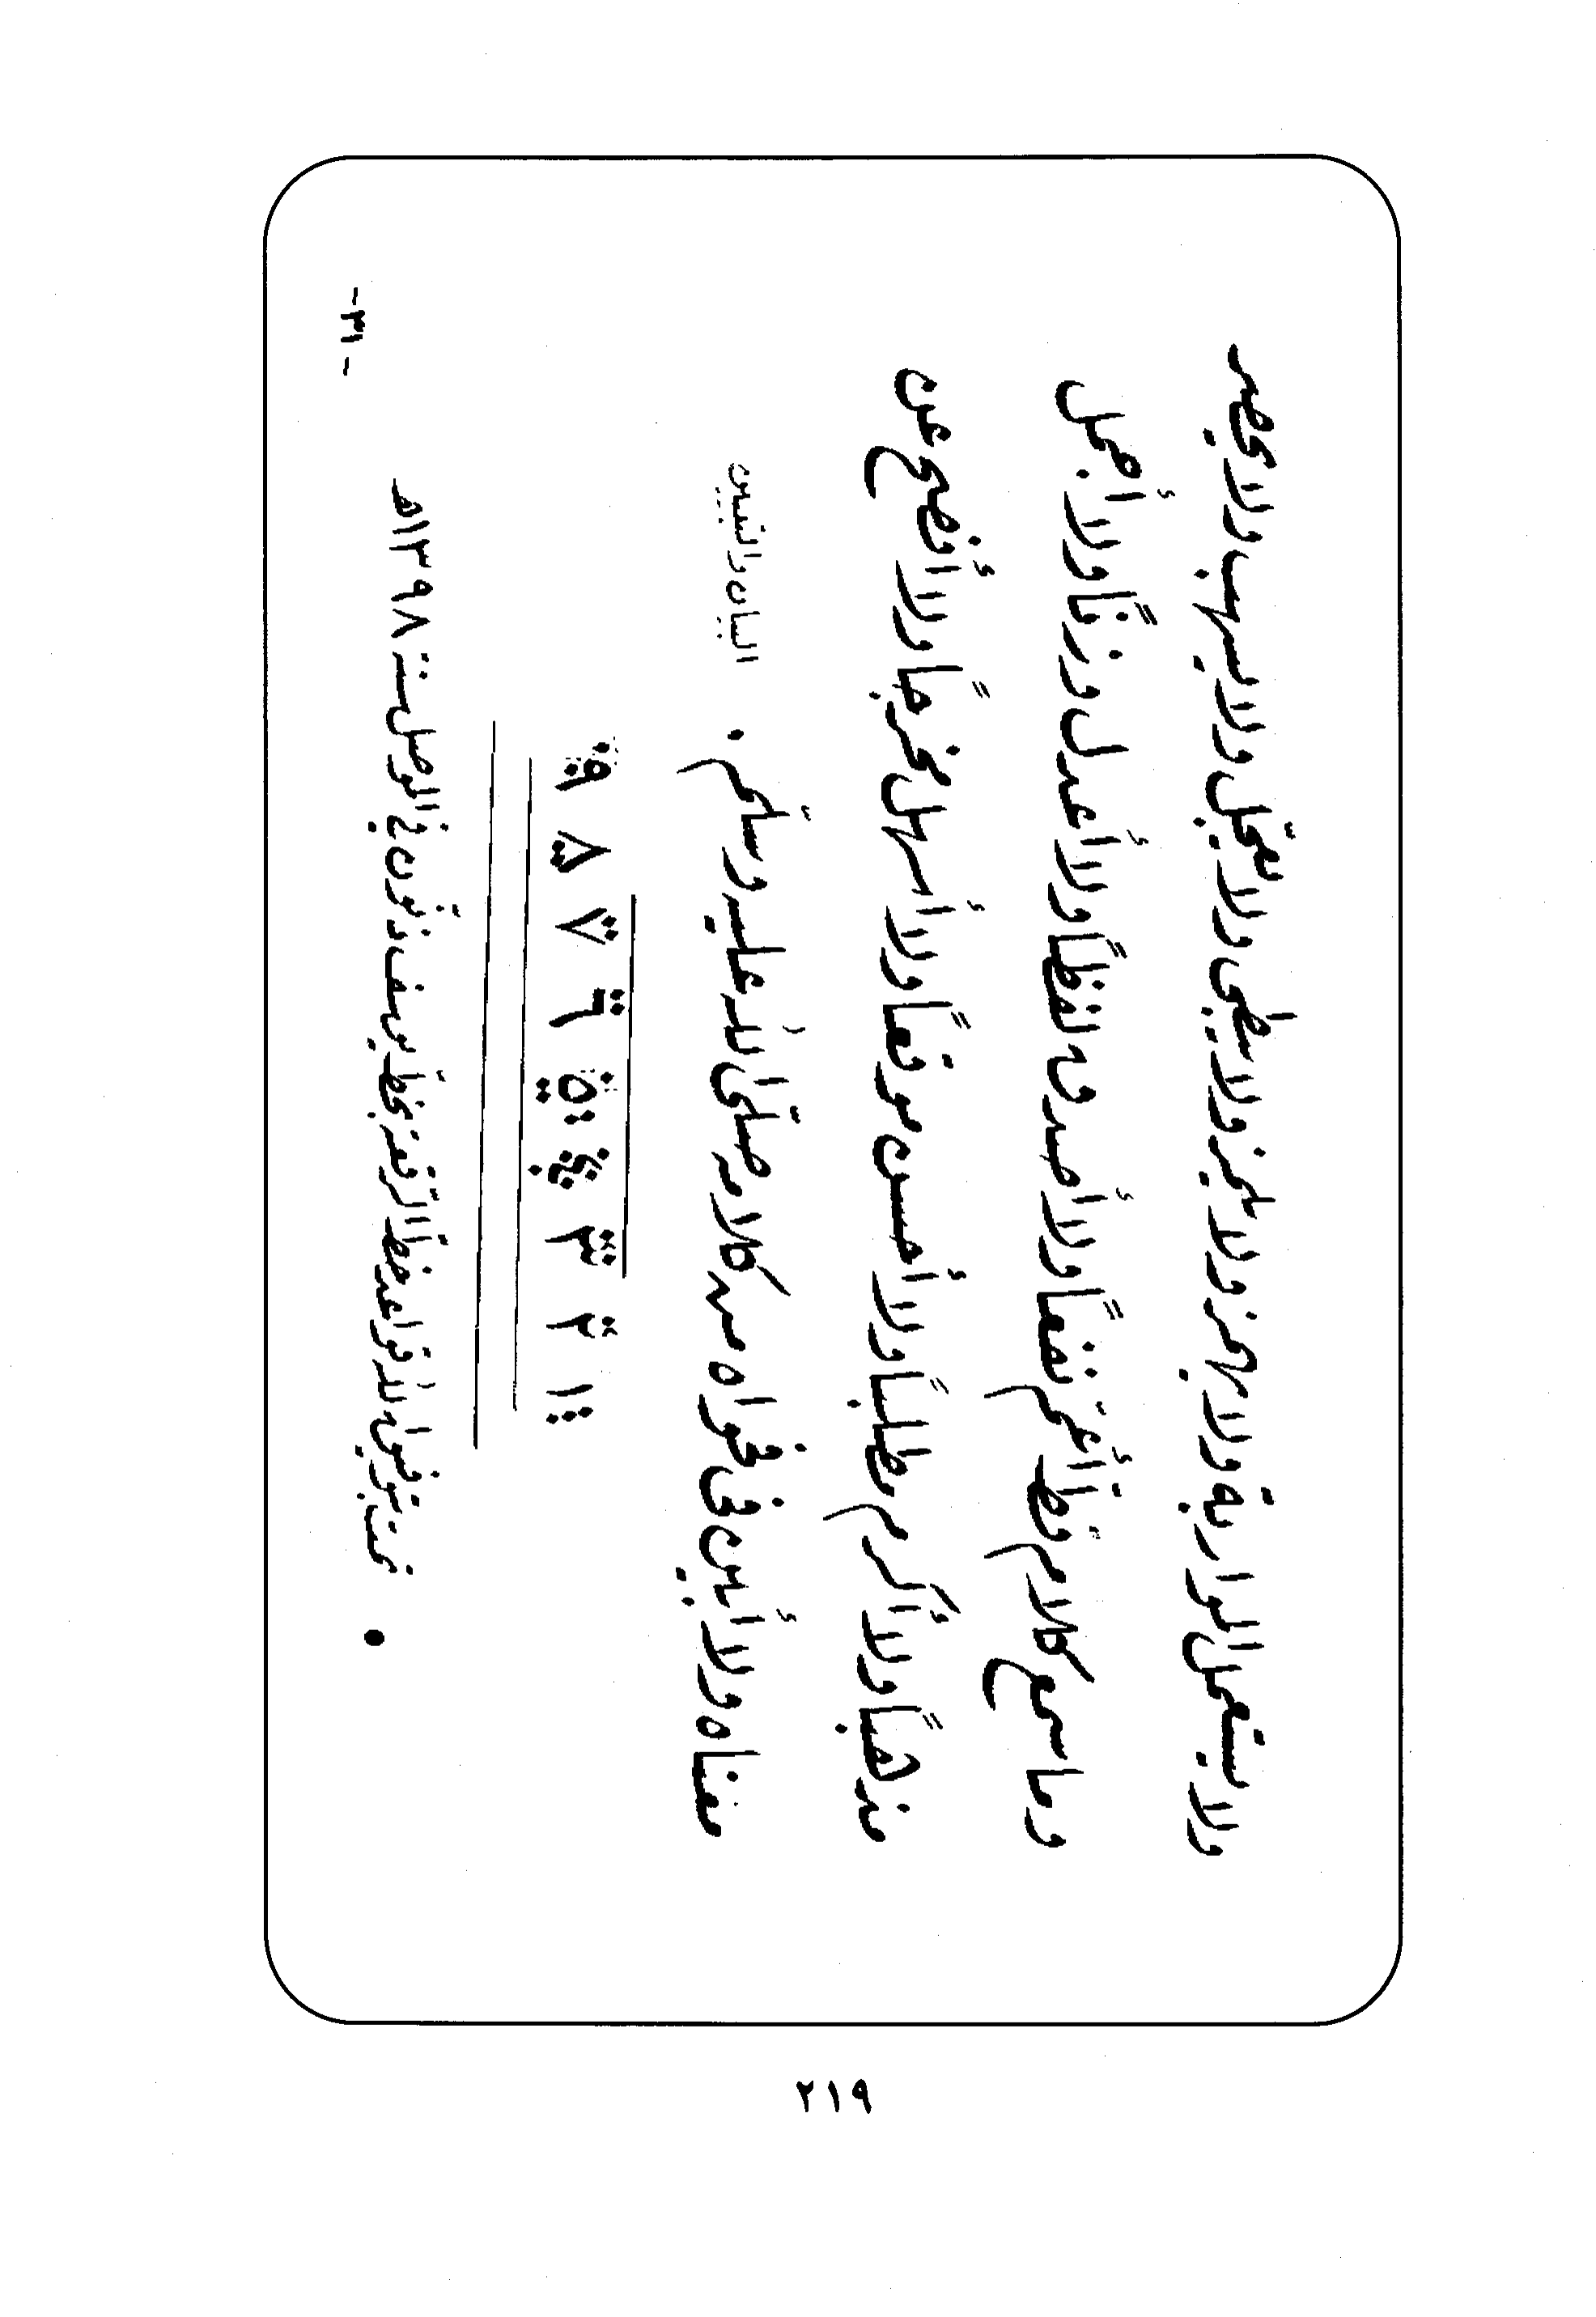 ولا يستعمل المواربة ولا يهمز ولا يلمز ولا يبطئ ولا يعجل ولا يسهب ولا يحصر
وما سمع كلام قط أعم نفعاً ولا أصدق لفظاً ولا أعدل وزناً ولا أجمل
مذهباً ولا أكرم مطلباً ولا أحسن موقعاً ولا أسهل مخرجاً ولا أفصح عن
معناه ولا أبين في فحواه من كلامه صلّى الله عليه وسلّم .
البيان والتبيين
١ ٢ ٣ ٤ ٥ ٦ ٧ ٨ ٩
تمت بتوفيق الله قواعد خط الرقعة بخط يوسف ذنون في الموصل سنة ١٣٩٨هـ
- ٣١ -
٢١٩